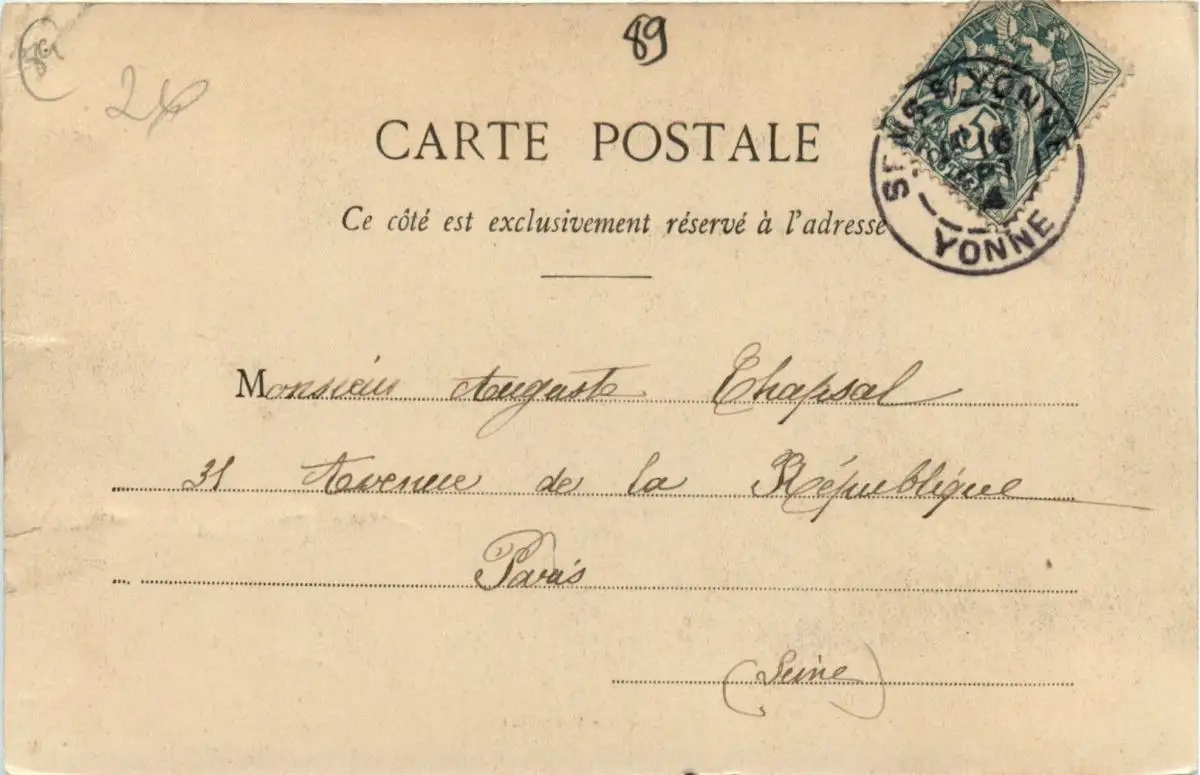 89
CARTE POSTALE
Ce côté est exclusivement réservé à l'adresse
SENS S/ YONNE
YONNE
5
Monsieur Auguste Chapsal
31 Avenue de la République
Paris
(Seine)